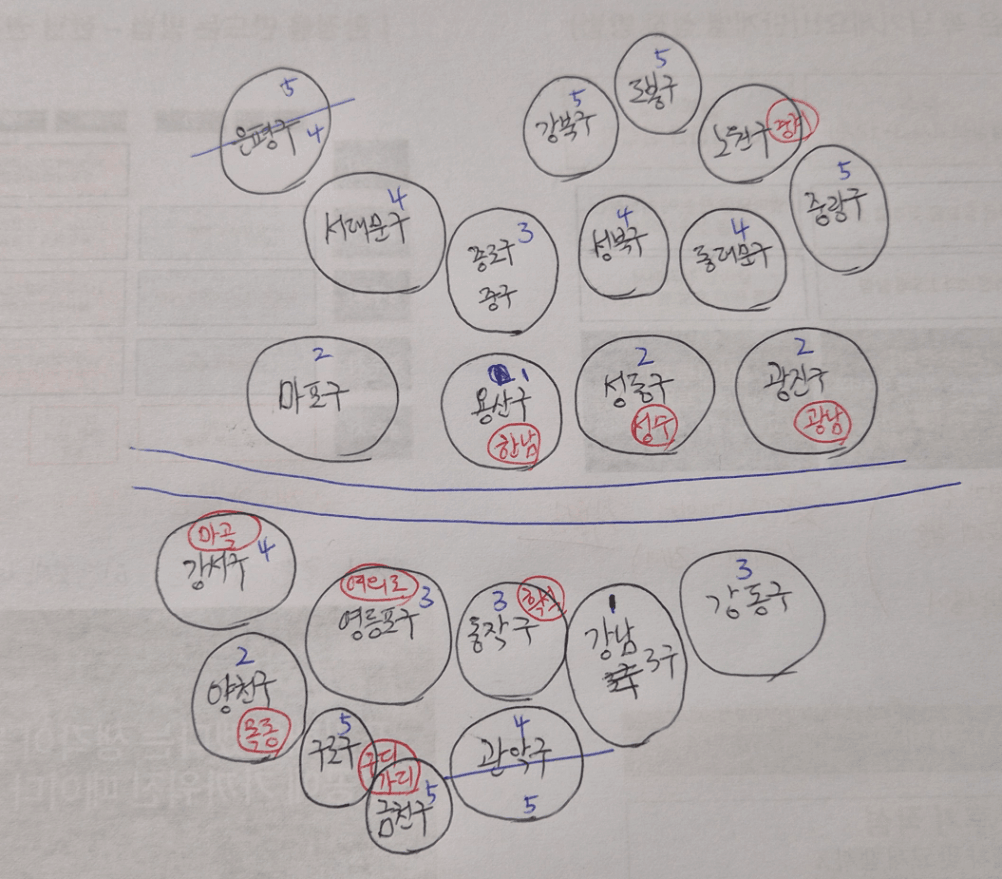 5
은평구
4
5
강북구
5
도봉구
노원구
5
중랑구
4
서대문구
3
종로구
중구
4
성북구
4
동대문구
2
마포구
1
용산구
한남
2
성동구
성수
2
광진구
광남
마곡
강서구 4
여의도
영등포구 3
3
동작구
1
강남
3구
3
강동구
2
양천구
목동
5
구로구
구디
가디
금천구 5
4
관악구
5